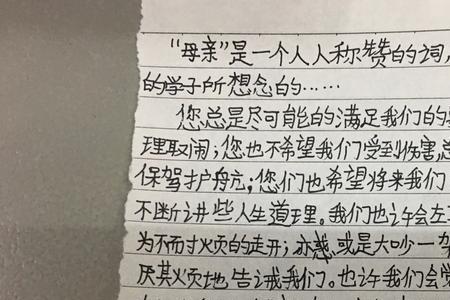 “母亲”是一个人人称赞的词,
的学子所想念的……
您总是尽可能的满足我们的
理取闹;您也不希望我们受到伤害,总
保驾护航;您们也希望将来我们
不断讲些人生道理。我们也许会左
为不耐烦的走开;亦惑,或是大吵一架
厌其烦地告诫我们。也许我们会觉